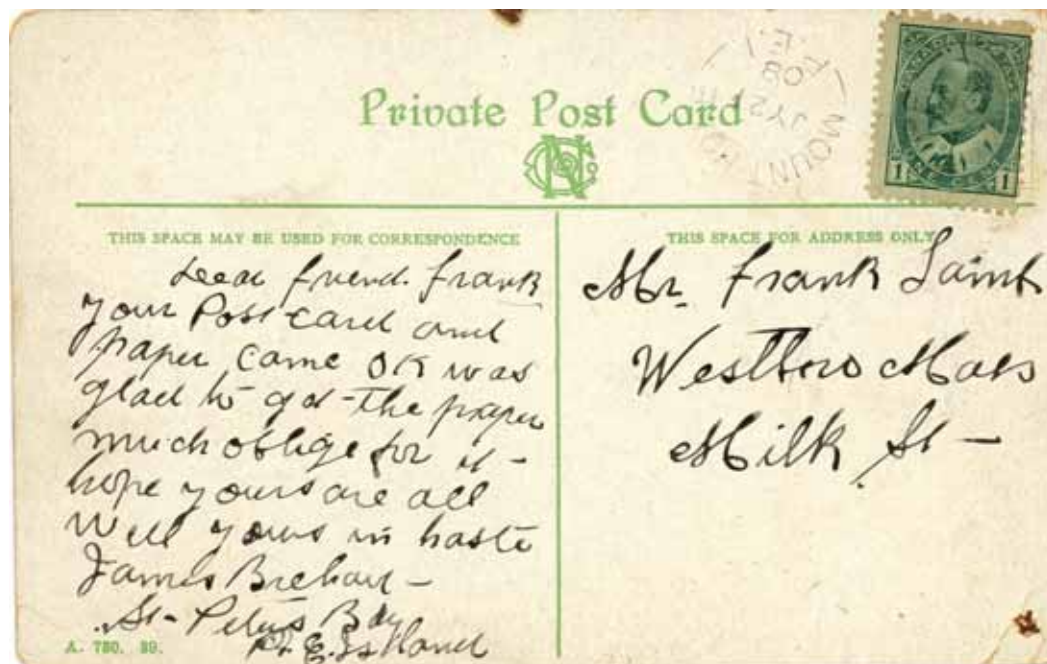 Private Post Card
MOUNT
P.E.I.
JY 2
08
CANADA
1 ONE CENT 1
THIS SPACE MAY BE USED FOR CORRESPONDENCE
Dear friend. Frank
your Post-card and
paper came OK was
glad to get the paper
much oblige for it-
hope yours are all
well yours in haste
James
St- Peters Bay
P. E. Island
A. 780. 39.
THIS SPACE FOR ADDRESS ONLY
Mr. Frank
Westboro Mass
Milk St-